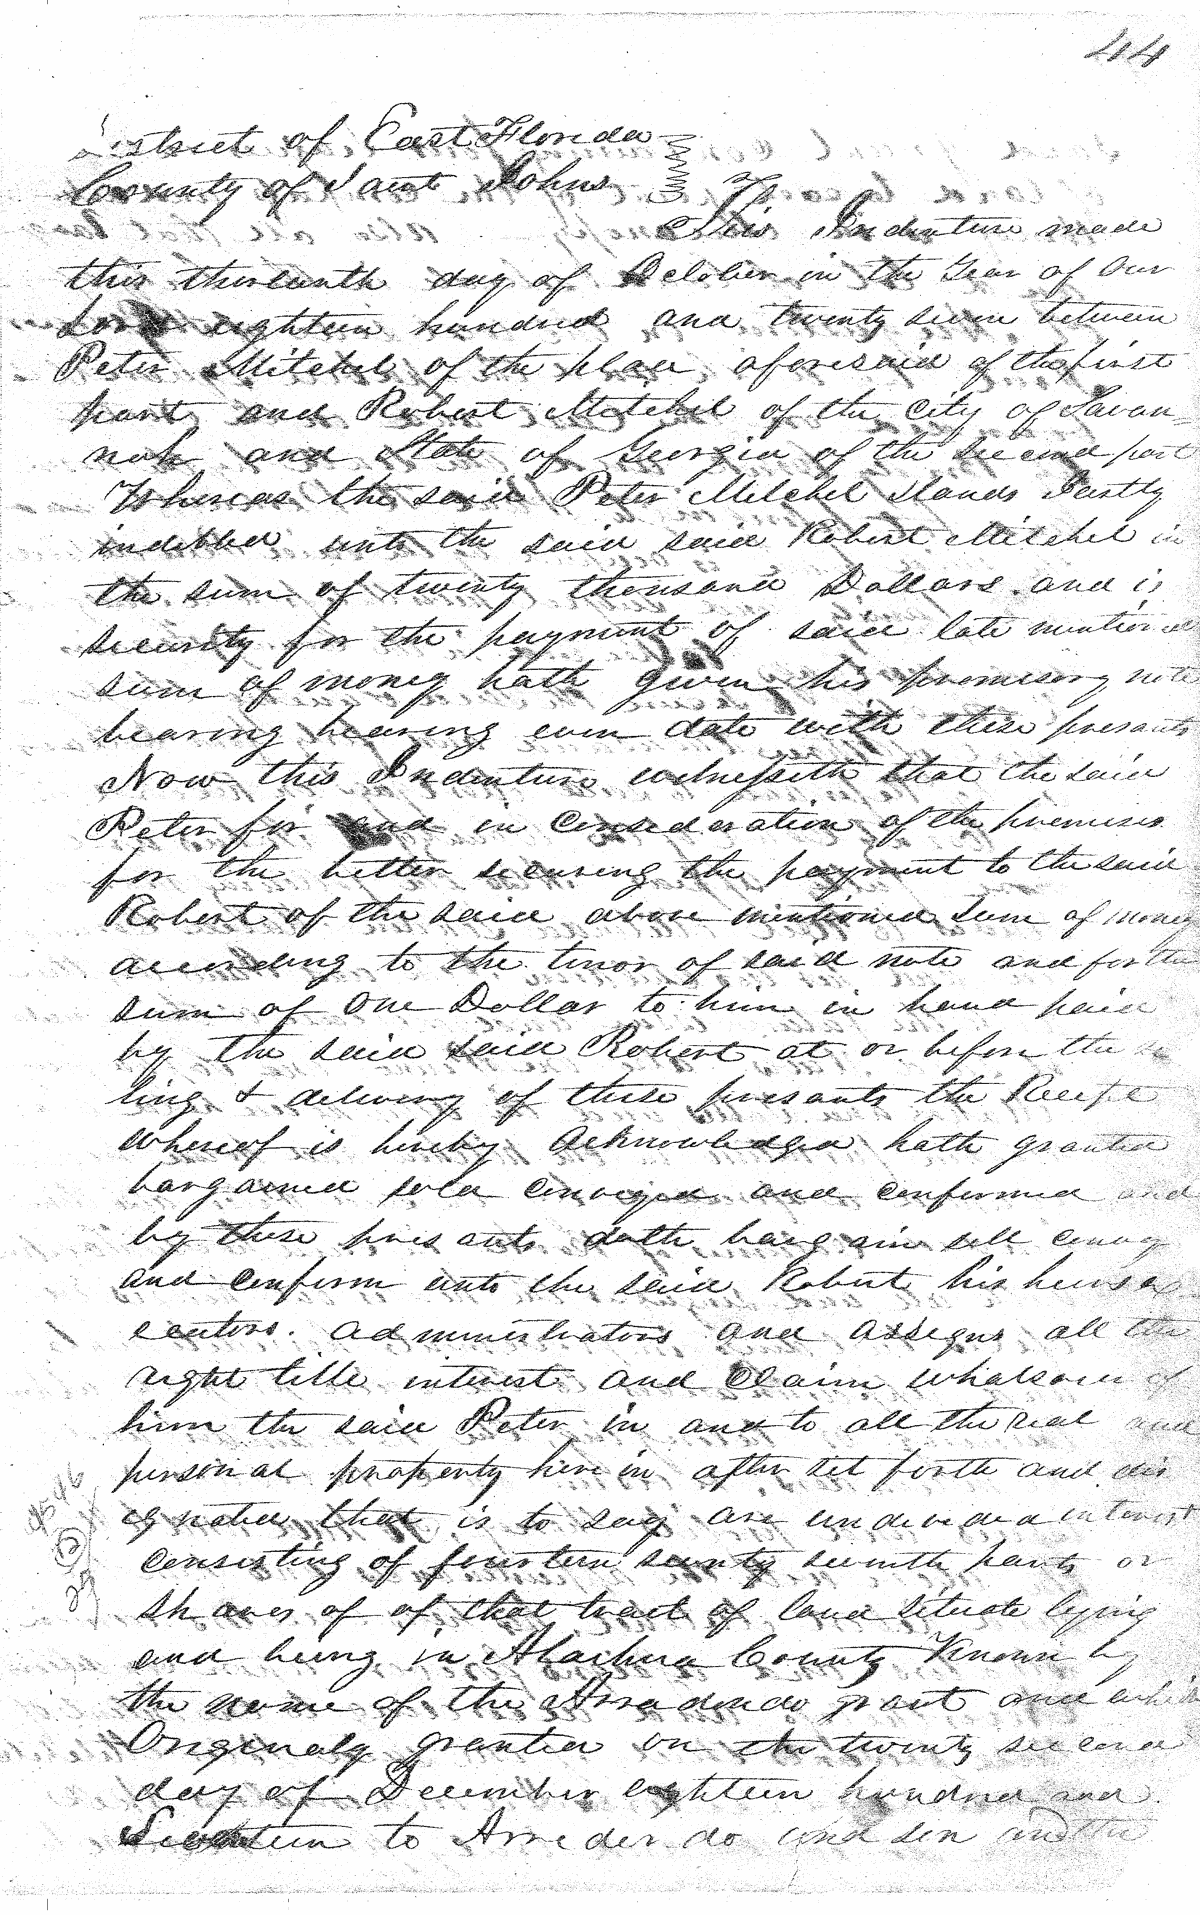 44
istrict of East Florida
County of Saint Johns
This Indenture made
this thirteenth day of October in the Year of Our
Lord eighteen hundred and twenty seven between
Peter Mitchel of the place aforesaid of the first
part and Robert Mitchel of the City of Savan=
nah and State of Georgia of the second part
Whereas the said Peter Mitchel Stands Jastly
indebted unto the said said Robert Mitchel in
the sum of twenty thousand Dollars and is
security for the payment of said late mentioned
sum of money hath given his promisory note
bearing bearing even date with these presants
Now this Indenture witnesseth that the said
Peter for and in Consederation of the premises
for the better securing the payment to the said
Robert of the said above mentioned Sum of money
according to the tenor of said note and for the
sum of One Dollar to him in hand paid
by the said said Robert at or before the
ling & delivery of these presants the
whereof is hereby Acknowledged hath granted
bargained sold conveyed and confirmed and
by these presants doth bargain sell convey
and confirm unto the said Robert his heirs ex
ecutors. administrators and assigns all the
right title interest and Claim whatsoever of
him the said Peter in and to all the real and
personal property here in after set forth and des
egnated that is to say are undevided interest
Consisting of fourteen seventy seventh parts or
Shares of of that tract of land situate lying
and being in Alachua County Known by
the name of the Arradondo grant and which
Originaly granted on the twenty second
day of December eighteen hundred and
Seventeen to Arredendo and son and the